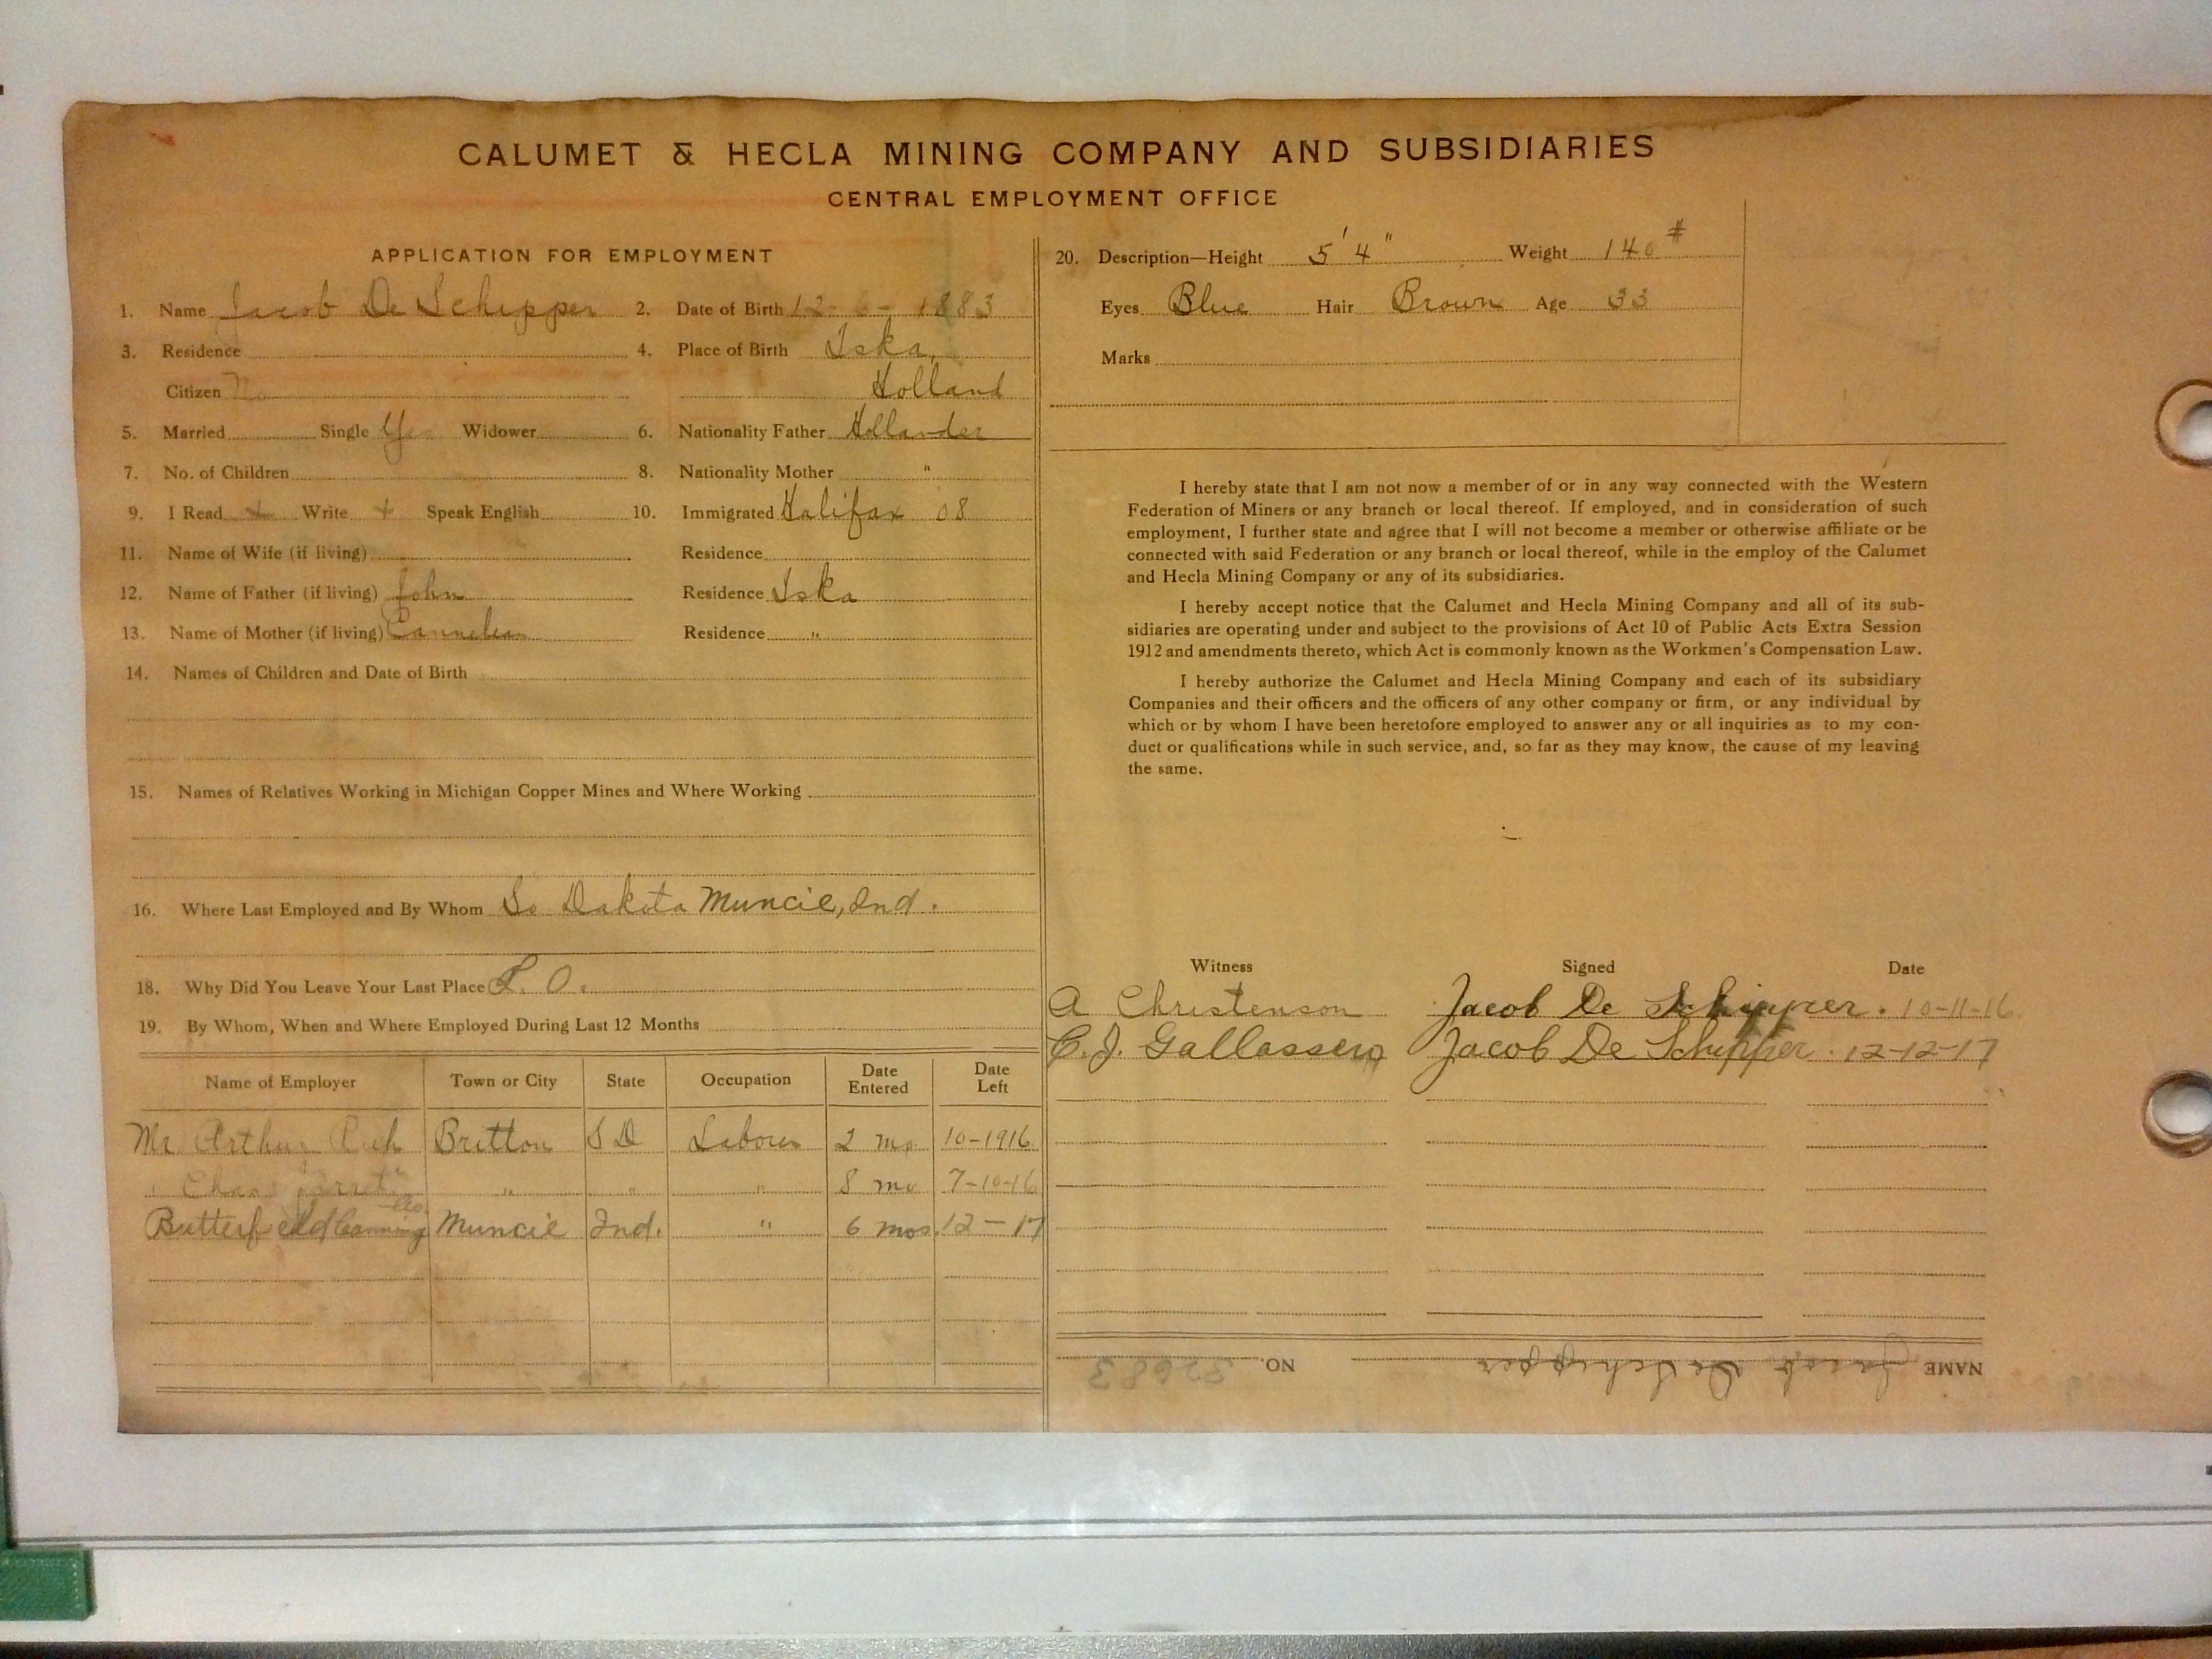 CALUMET & HECLA MINING COMPANY AND SUBSIDIARIES
CENTRAL EMPLOYMENT OFFICE
APPLICATION FOR EMPLOYMENT
1. Name Jacob De Schipper 2. Date of Birth 12- 6 - 1883
3. Residence 4. Place of Birth Iska,
Citizen Holland
5. Married Single Yes Widower 6. Nationality Father Hollander
7. No. of Children 8. Nationality Mother "
9. I Read + Write + Speak English 10. Immigrated Halifax 08
11. Name of Wife (if living) Residence
12. Name of Father (if living) John Residence Iska
13. Name of Mother (if living) Residence "
14. Names of Children and Date of Birth
15. Names of Relatives Working in Michigan Copper Mines and Where Working
16. Where Last Employed and By Whom So Dakota Muncie, Ind.
18. Why Did You Leave Your Last Place L. O.
19. By Whom, When and Where Employed During Last 12 Months
Name of Employer Town or City State Occupation Date Entered Date Left
Mr. Arthur Britton S D Laborer 2 mo 10-1916
" Chas " " " 8 mo 7-10-16
Butterfield Canning Co. Muncie Ind. " 6 mos. 12-17
20. Description—Height 5' 4" Weight 140 #
Eyes Blue Hair Brown Age 33
Marks
I hereby state that I am not now a member of or in any way connected with the Western
Federation of Miners or any branch or local thereof. If employed, and in consideration of such
employment, I further state and agree that I will not become a member or otherwise affiliate or be
connected with said Federation or any branch or local thereof, while in the employ of the Calumet
and Hecla Mining Company or any of its subsidiaries.
I hereby accept notice that the Calumet and Hecla Mining Company and all of its sub-
sidiaries are operating under and subject to the provisions of Act 10 of Public Acts Extra Session
1912 and amendments thereto, which Act is commonly known as the Workmen's Compensation Law.
I hereby authorize the Calumet and Hecla Mining Company and each of its subsidiary
Companies and their officers and the officers of any other company or firm, or any individual by
which or by whom I have been heretofore employed to answer any or all inquiries as to my con-
duct or qualifications while in such service, and, so far as they may know, the cause of my leaving
the same.
Witness Signed Date
A Christenson Jacob De Schipper. 10-11-16
C. J. Gallassero Jacob De Schipper. 12-12-17
NAME Jacob De Schipper NO. 32683